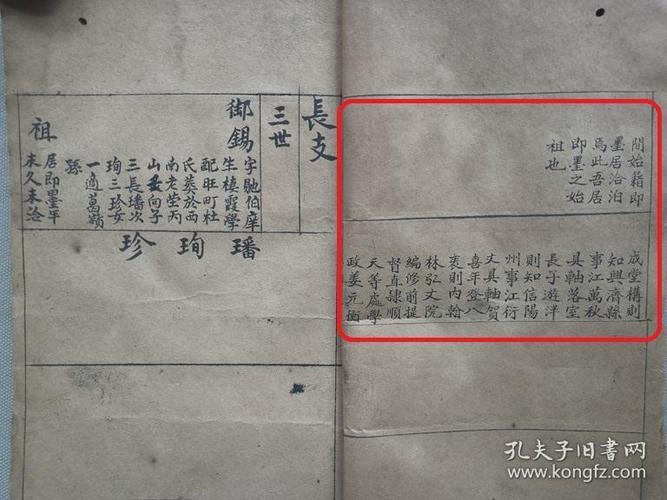 間始籍即
墨居洽泊
焉此吾居
即墨之始
祖也
成堂構則
知興濟縣
事江萬秋
具軸落室
長子遊泮
則知信陽
州事江衍
丈具軸賀
喜年登八
袠則内翰
林弘文院
編修前提
督直隸順
天等處學
政姜元衡
長支
三世
御錫
字馳伯庠
生棲霞學
配旺町杜
氏葬於西
南老塋丙
山向子
三長璠次
珣三珍女
一適萬籟
孫
祖
居即墨年
末久未洽
璠
珣
珍
孔夫子旧书网
www.kongfz.com